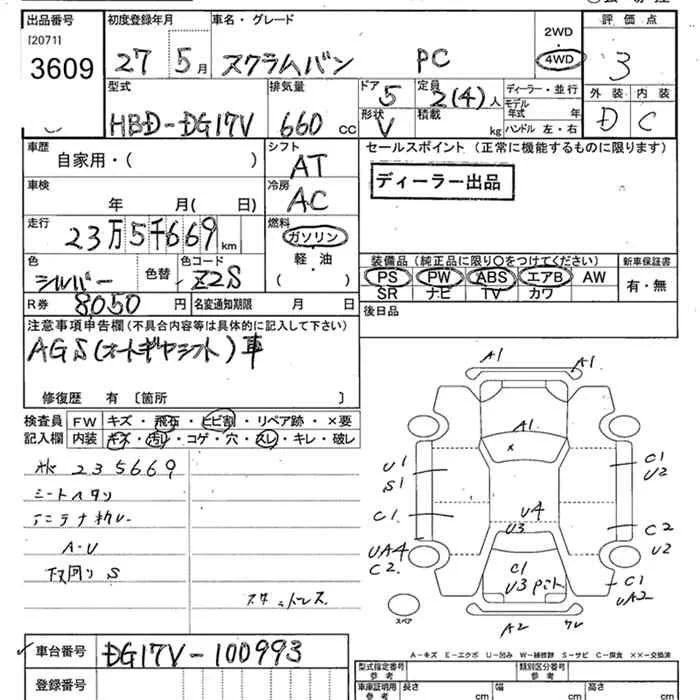 出品番号 初度登録年月 車名・グレード 2WD 評価点
[2071]
3609 27 5月 スクラムバン PC 4WD 3
型式 排気量 ドア 5 定員 2(4)人 ディーラー・並行 外装 内装
HBD-DG17V 660cc 形状 V 積載 kg モデル年式 年 D C
ハンドル 左・右
車歴 シフト セールスポイント(正常に機能するものに限ります)
自家用・( ) AT ディーラー出品
車検 冷房
年 月( 日) AC
走行 燃料
23万5千669km ガソリン
色 色コード 軽・油 装備品(純正品に限り○をつけてください) 新車保証書
シルバー 色替 Z2S ( ) PS PW ABS エアB AW 有・無
SR ナビ TV カワ
R券 8050円 名変通知期限 月 日 後日品
注意事項申告欄(不具合内容等は具体的に記入して下さい)
AGS(オートギヤシフト)車
修復歴 有〔箇所 〕
検査員 FW キズ・飛石・ヒビ割・リペア跡・×要
記入欄 内装 キズ・汚れ・コゲ・穴・スレ・キレ・破レ
235669
シートヘタリ
アンテナ折レ
A-U
下回り S
A1 A1
A1
×
U1
S1
C1
U2
C1
U4
U3
C2
UA4
C2
U2
C1
U3
C1
UA2
A2
スペア
A-キズ E-エクボ U-凹み W-補修跡 S-サビ C-腐食 ××-交換済
車台番号 DG17V-100993
登録番号
型式指定番号 参考 類別区分番号 参考
車庫証明用 参考 長さ cm 幅 cm 高さ cm